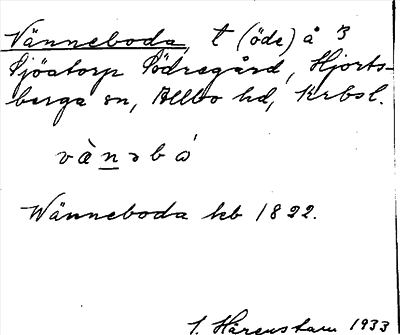 Vänneboda, t (öde) å 3
Sjöatorp Södregård, Hjorts-
berga sn, Allbo hd, Krbsl.
vànəbó
Wänneboda kb 1822.
I. Härenstam 1933